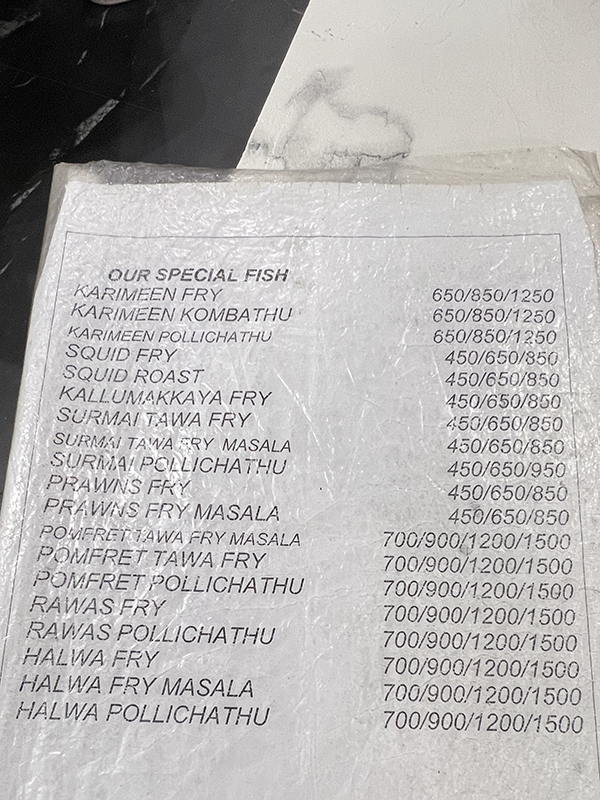 OUR SPECIAL FISH
KARIMEEN FRY 650/850/1250
KARIMEEN KOMBATHU 650/850/1250
KARIMEEN POLLICHATHU 650/850/1250
SQUID FRY 450/650/850
SQUID ROAST 450/650/850
KALLUMAKKAYA FRY 450/650/850
SURMAI TAWA FRY 450/650/850
SURMAI TAWA FRY MASALA 450/650/850
SURMAI POLLICHATHU 450/650/950
PRAWNS FRY 450/650/850
PRAWNS FRY MASALA 450/650/850
POMFRET TAWA FRY MASALA 700/900/1200/1500
POMFRET TAWA FRY 700/900/1200/1500
POMFRET POLLICHATHU 700/900/1200/1500
RAWAS FRY 700/900/1200/1500
RAWAS POLLICHATHU 700/900/1200/1500
HALWA FRY 700/900/1200/1500
HALWA FRY MASALA 700/900/1200/1500
HALWA POLLICHATHU 700/900/1200/1500